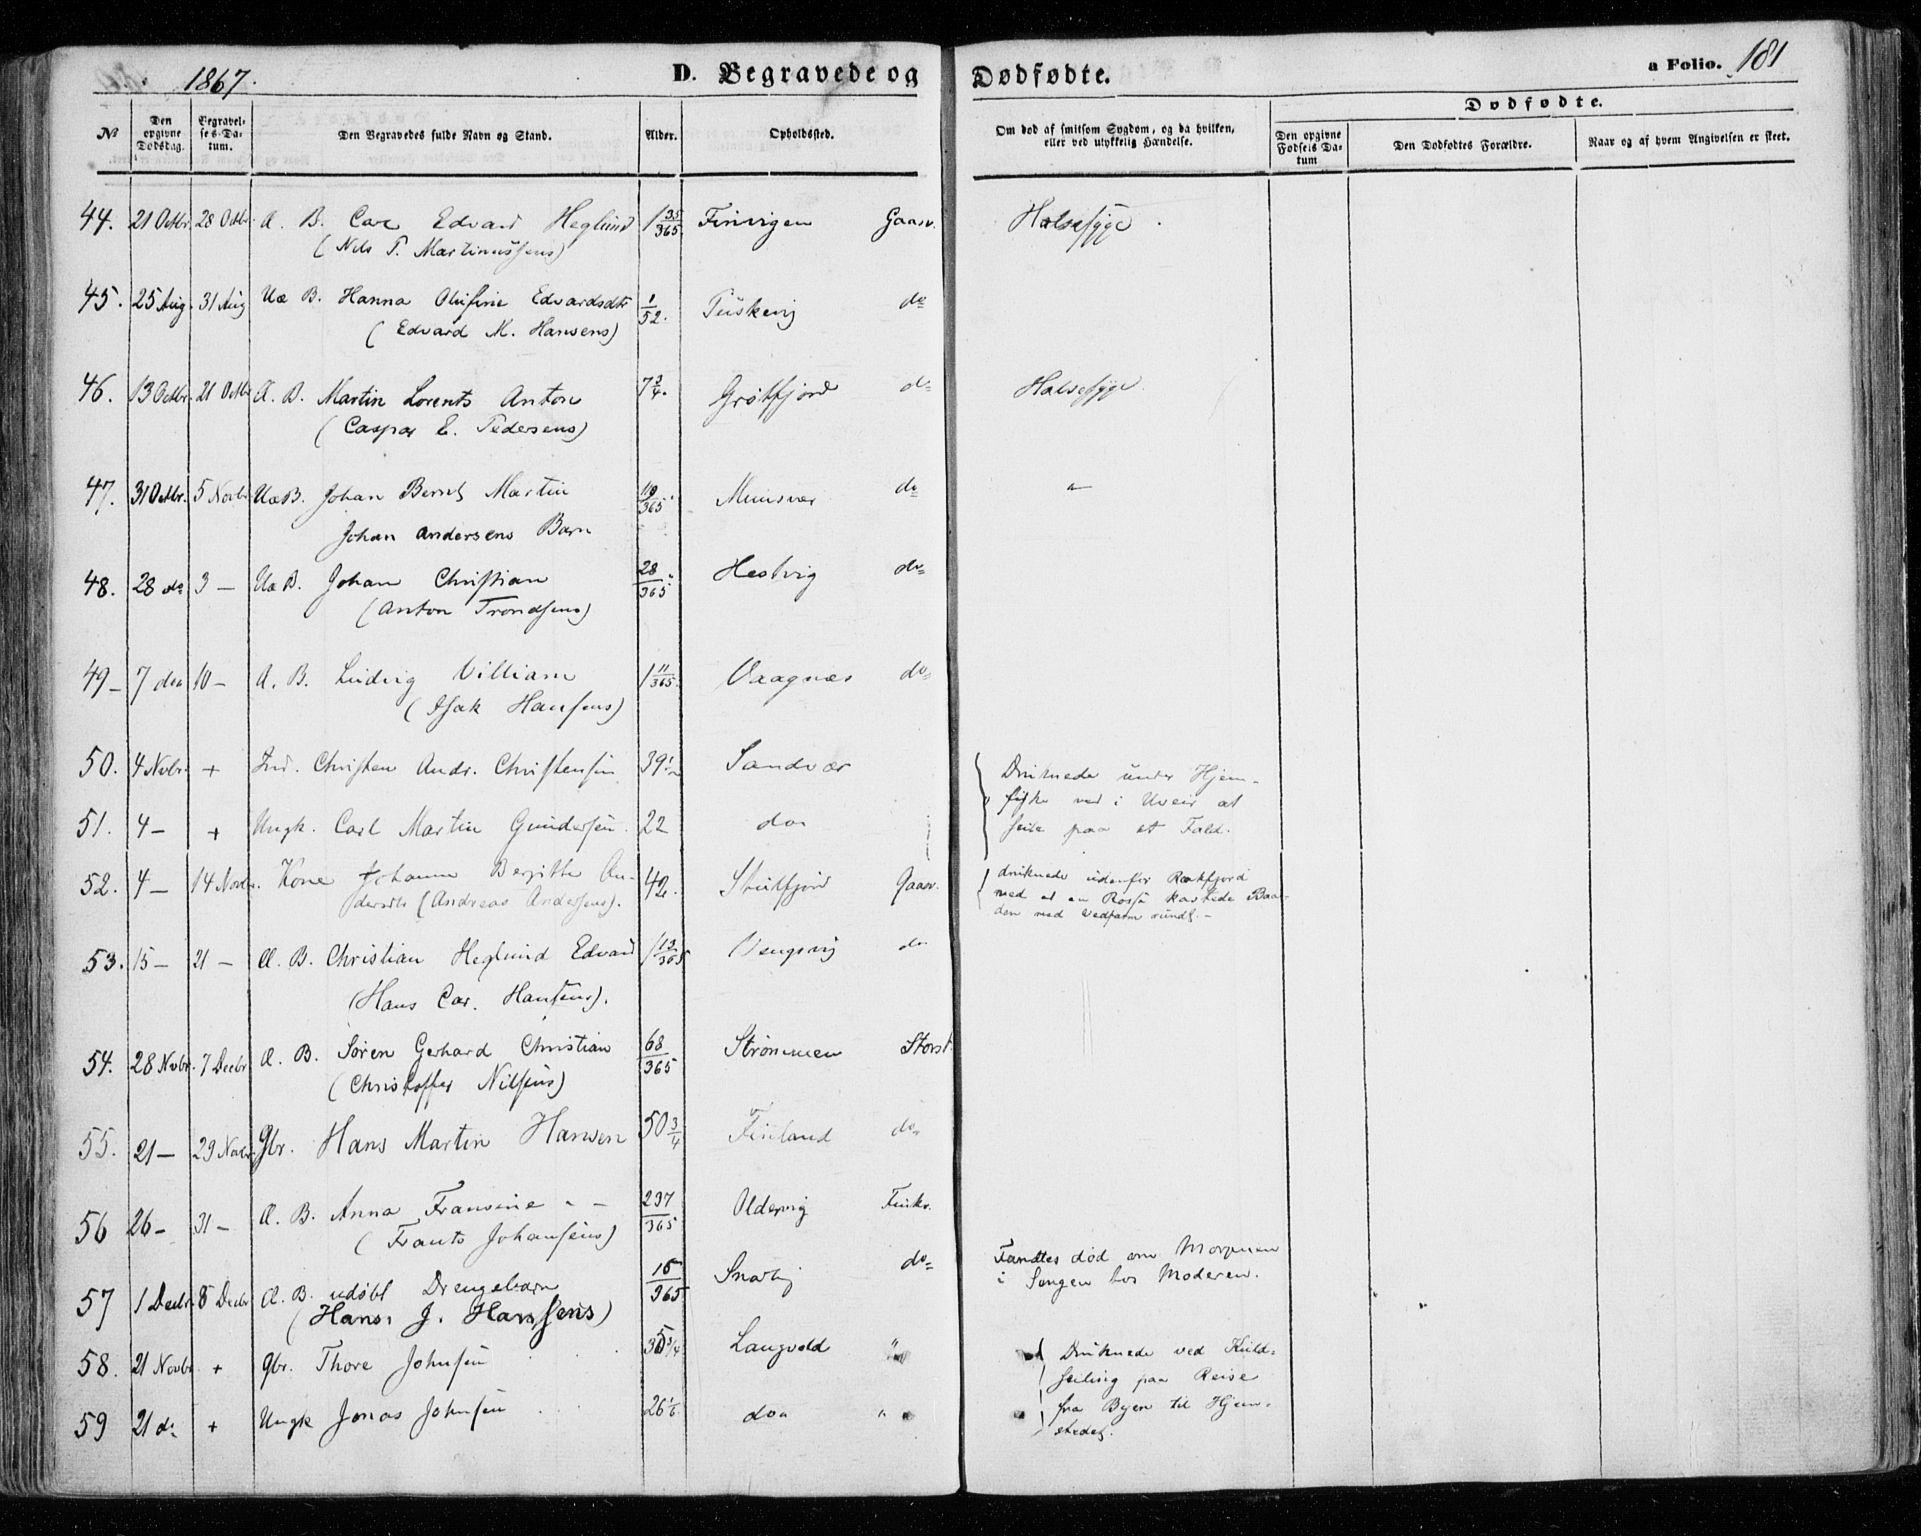 1867.
D. Begravede og Dødfødte.
a Folio. 181
No
Den opgivne Dødsdag.
Begravelses-Datum.
Den Begravedes fulde Navn og Stand.
Alder.
Opholdssted.
Om død af smitsom Sygdom, og da hvilken, eller ved ulykkelig Hændelse.
Dødfødte.
Den opgivne Fødsels Datum
Den Dødfødtes Forældre.
Naar og af hvem Angivelsen er skeet.
44. 21 Octbr. 28 Octbr. Æ. B. Carl Edvard Heglund 1 35/365 Finvigen Gaasv. Halsesyge
(Nils T. Martinussens)
45. 25 Aug. 31 Aug Uæ B. Hanna Olufine Edvardsdtr 1/52. Tuskevig do
(Edvard M. Hansens)
46. 13 Octbr. 21 Octbr Æ. B. Martin Lorents Anton 7 3/4. Grøtfjord do Halsesyge
(Caspar E. Pedersens)
47. 31 Octbr. 5 Novbr Uæ B. Johan Bernt Martin 10/365 Musvær do "
Johan Andersens Barn
48. 28 do 3 — Uæ B. Johan Christian 28/365 Hestvig do
(Anton Trondsens)
49 — 7 do 10 — Æ. B. Ludvig Villiam 1 11/365. Vaagnæs do
(Isak Hansens)
50. 4 Novbr + Ind. Christen Andr. Christensen 39 1/2 Sandvær
Druknede under Hjem-
fiske ved i Uveir at
seile paa et Fald.
51. 4 — + Ungk. Carl Martin Gundersen. 22 do
52. 4 — 14 Novbr. Kone Johanna Bergitte An- 42. Skulsfjord Gaasv.
dersdtr (Andreas Andersens).
druknede udenfor Rækfjord
ved at en Rosse kastede Baa-
den med Vedfarm rundt. —
53. 15 — 21 — Æ. B. Christian Heglund Edvard 1 13/365 Vengsvig do
(Hans Car. Hansens).
54. 28 Novbr. 7 Decbr Æ. B. Søren Gerhard Christian 68/365 Strømmen Storst.
(Christoffer Nilsens)
55. 21 — 29 Novbr. gbr. Hans Martin Hansen 50 3/4 Finland do
56 26 — 31 — Æ. B. Anna Fransine 237/365 Oldervig
(Frants Johansens)
57 1 Decbr 8 Decbr Æ. B. udøbt Drengebarn 16/365 Snarby do
(Hans J. Hanssens)
Fandtes død om Morgenen
i Sengen hos Moderen.
58. 21 Novbr + gbr. Thore Johnsen 35 3/4 Langvold "
Druknede ved Kuld-
seiling paa Reise
fra Byen til Hjem-
stedet.
59 21 do + Ungk Jonas Johnsen 26 1/6 do "